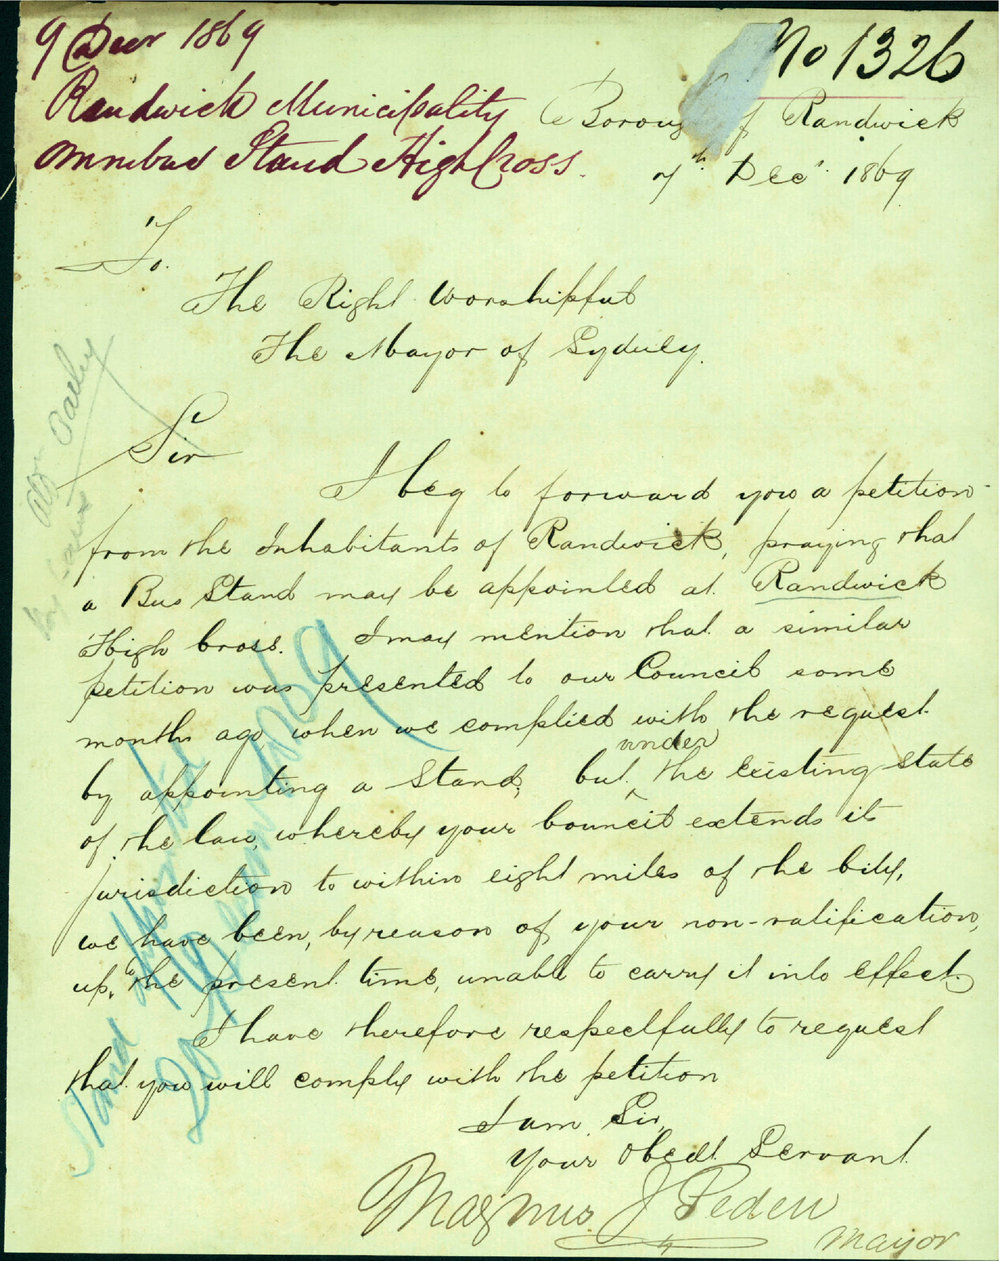 9 Decr 1869
No 1326
Randwick Municipality
Omnibus Stand High Cross.
Borough of Randwick
7th Decr 1869
To.
The Right Worshipful
The Mayor of Sydney.
Sir
I beg to forward you a petition
from the Inhabitants of Randwick, praying that
a Bus Stand may be appointed at Randwick
High Cross. I may mention that a similar
petition was presented to our Council some
months ago when we complied with the request
by appointing a Stand, but under the existing state
of the law, whereby your Council extends its
jurisdiction to within eight miles of the City,
we have been, by reason of your non-ratification,
up to the present time, unable to carry it into effect.
I have therefore respectfully to request
that you will comply with the petition
I am Sir,
Your Obedt Servant
Magnus J Peden
Mayor
Stand appointed
20 December 1869